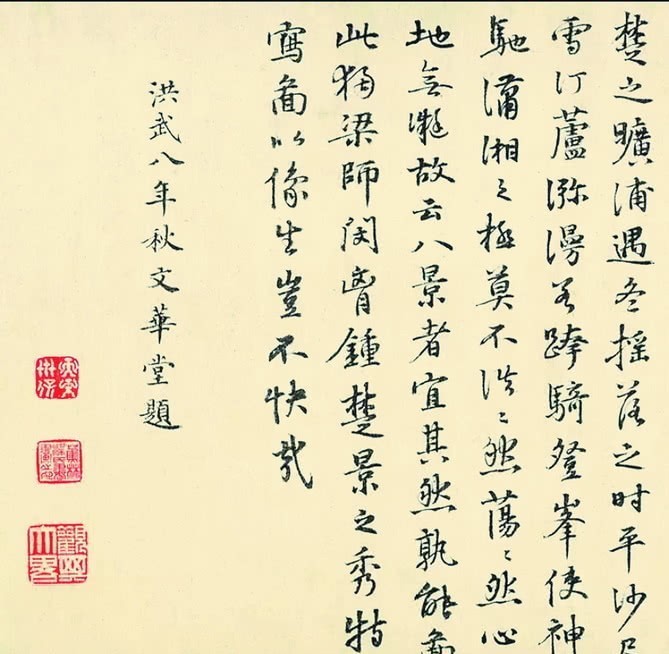 楚之曠浦遇冬搖落之時平沙
雪汀蘆瀰漫若跨騎登峯使神
馳瀟湘之極莫不浩浩然蕩蕩然心
地無凝故云八景者宜其然孰能圖
此獨梁師閔胷鍾楚景之秀特
寫圖以像生豈不快哉
洪武八年秋文華堂題